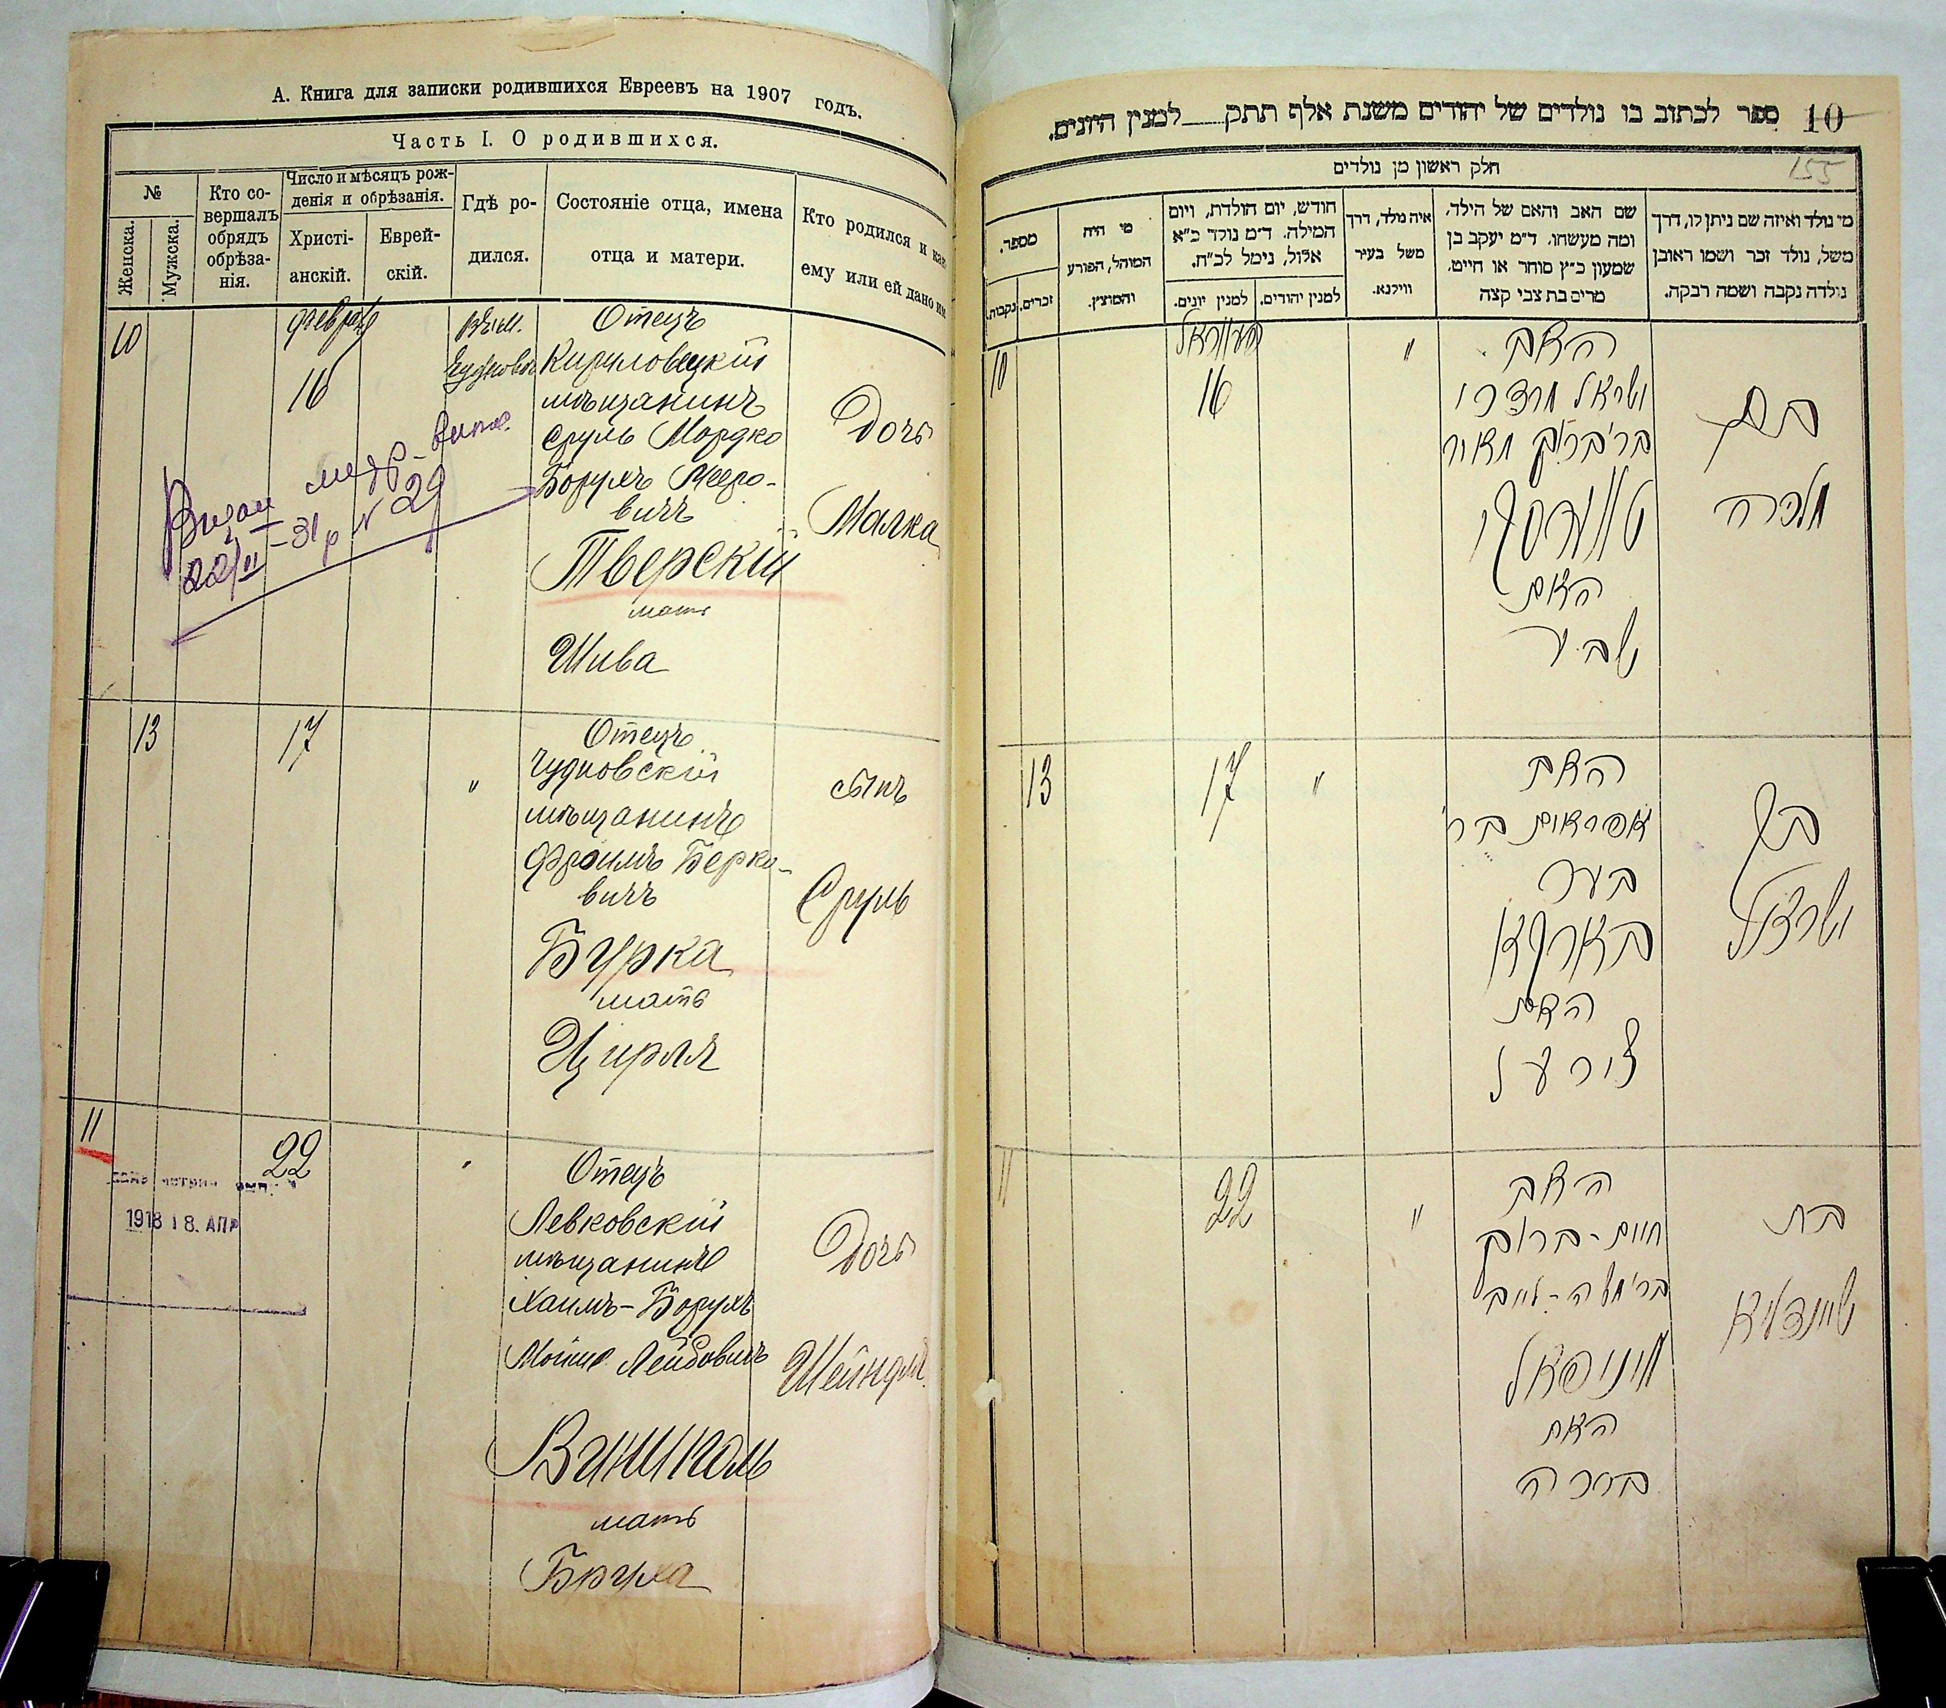 А. Книга для записки родившихся Евреевъ на 1907 годъ.
Часть I. О родившихся.
№
Женска.
Мужска.
Кто со-
вершалъ
обрядъ
обрѣза-
нія.
Число и мѣсяцъ рож-
денія и обрѣзанія.
Христі-
анскій.
Еврей-
скій.
Гдѣ ро-
дился.
Состояніе отца, имена
отца и матери.
Кто родился и как
ему или ей дано им
10
16
Отецъ
Кириловецкій
мѣщанинъ
Сруль Мордко
Борухъ Мееро-
вичъ
Тверскій
мать
Шива
Дочь
Малка
22/II - 31 р № 29
13
17
"
Отецъ
Чудновскій
мѣщанинъ
Фроимъ Берко-
вичъ
Бурка
мать
Цирля
сынъ
Сруль
11
22
"
Отецъ
Левковскій
мѣщанинъ
Хаимъ-Борухъ
Мошко Лейбовичъ
Винниполь
мать
Бруха
Дочь
Шейндля
1918 18. АПР
10
155
ספר לכתוב בו נולדים של יהודים משנת אלף תתק למנין היונים.
חלק ראשון מן נולדים
מי נולד ואיזה שם ניתן לו, דרך
משל, נולד זכר ושמו ראובן
נולדה נקבה ושמה רבקה.
שם האב והאם של הילד,
ומה מעשהו. ד״מ יעקב בן
שמעון כ״ץ סוחר או חייט,
מרים בת צבי קצה
איה נולד, דרך
משל בעיר
ווילנא.
חודש, יום הולדת, ויום
המילה. ד״מ נולד כ״א
אלול, נימל לכ״ח.
למנין יהודים.
למנין יונים.
מי היה
המוהל, הפורע
והמוצץ.
מספר.
זכרים.
נקבות.
10
16
"
האב
ישראל מרדכי
בר' ברוך מאיר
טווערסקי
האם
שבע
בת
מלכה
13
17
"
האב
אפראים בר'
בער
בארקא
האם
צירעל
בן
ישראל
11
22
"
האב
חיים-ברוך
בר' משה-לייב
וויניפאל
האם
ברכה
בת
שיינדליא